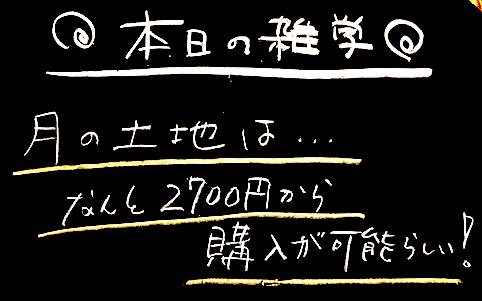 本日の雑学
月の土地は...
なんと2700円から
購入が可能らしい!